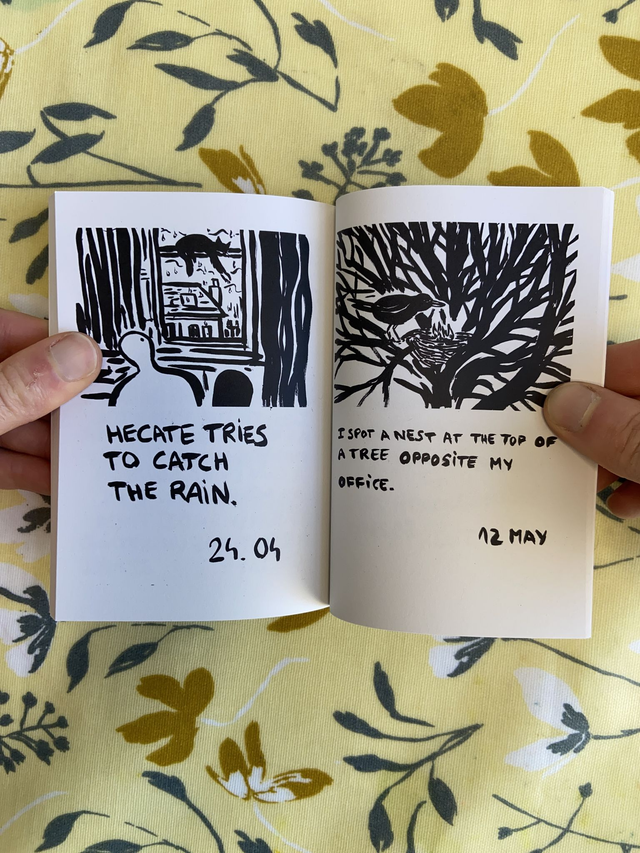 HECATE TRIES
TO CATCH
THE RAIN.
24.04
I SPOT A NEST AT THE TOP OF
A TREE OPPOSITE MY
OFFICE.
12 MAY